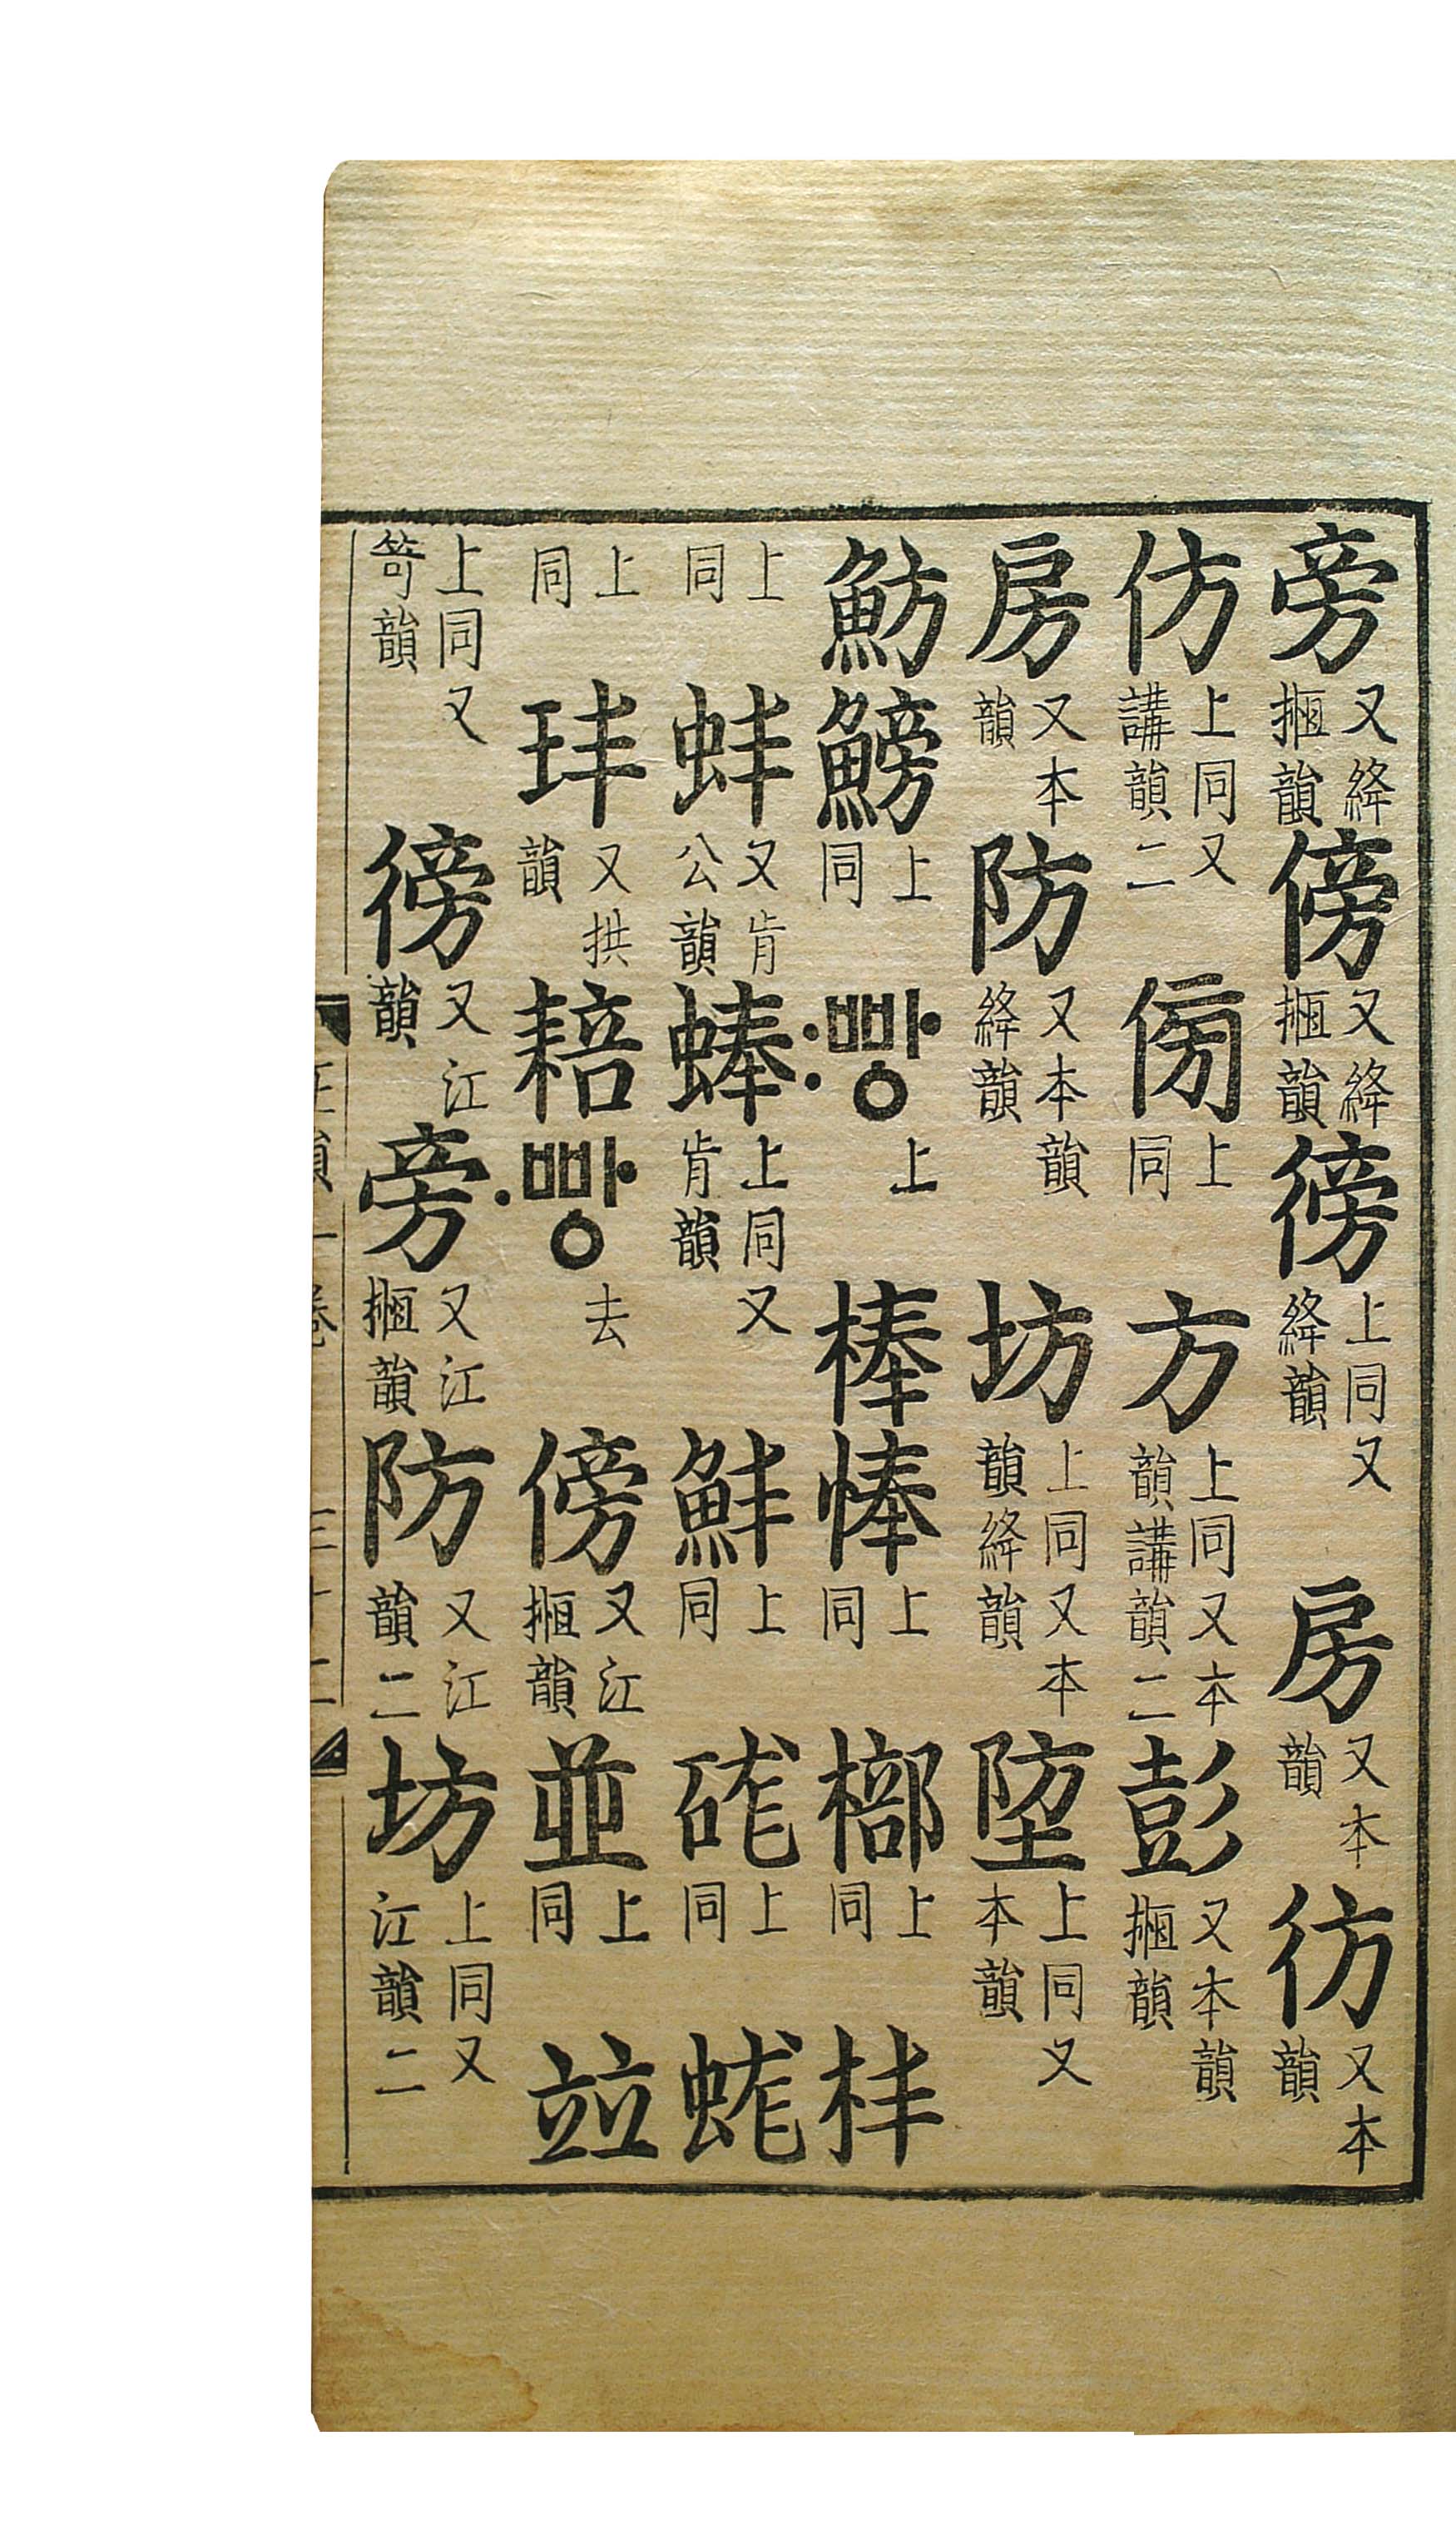 旁又絳搄韻傍又絳搄韻徬上同又絳韻房又本韻彷又本韻
仿上同又講韻二上同方上同又本韻講韻二彭又本韻搄韻
房又本韻防又本韻絳韻坊上同又本韻絳韻埅上同又本韻
魴鰟上同:빵上棒上同上同
上同蚌又肯公韻蜯上同又肯韻上同上同
上同玤又拱韻䎧·빵去傍又江搄韻並上同竝
上同又笴韻徬又江韻旁又江搄韻防又江韻二坊上同又江韻二